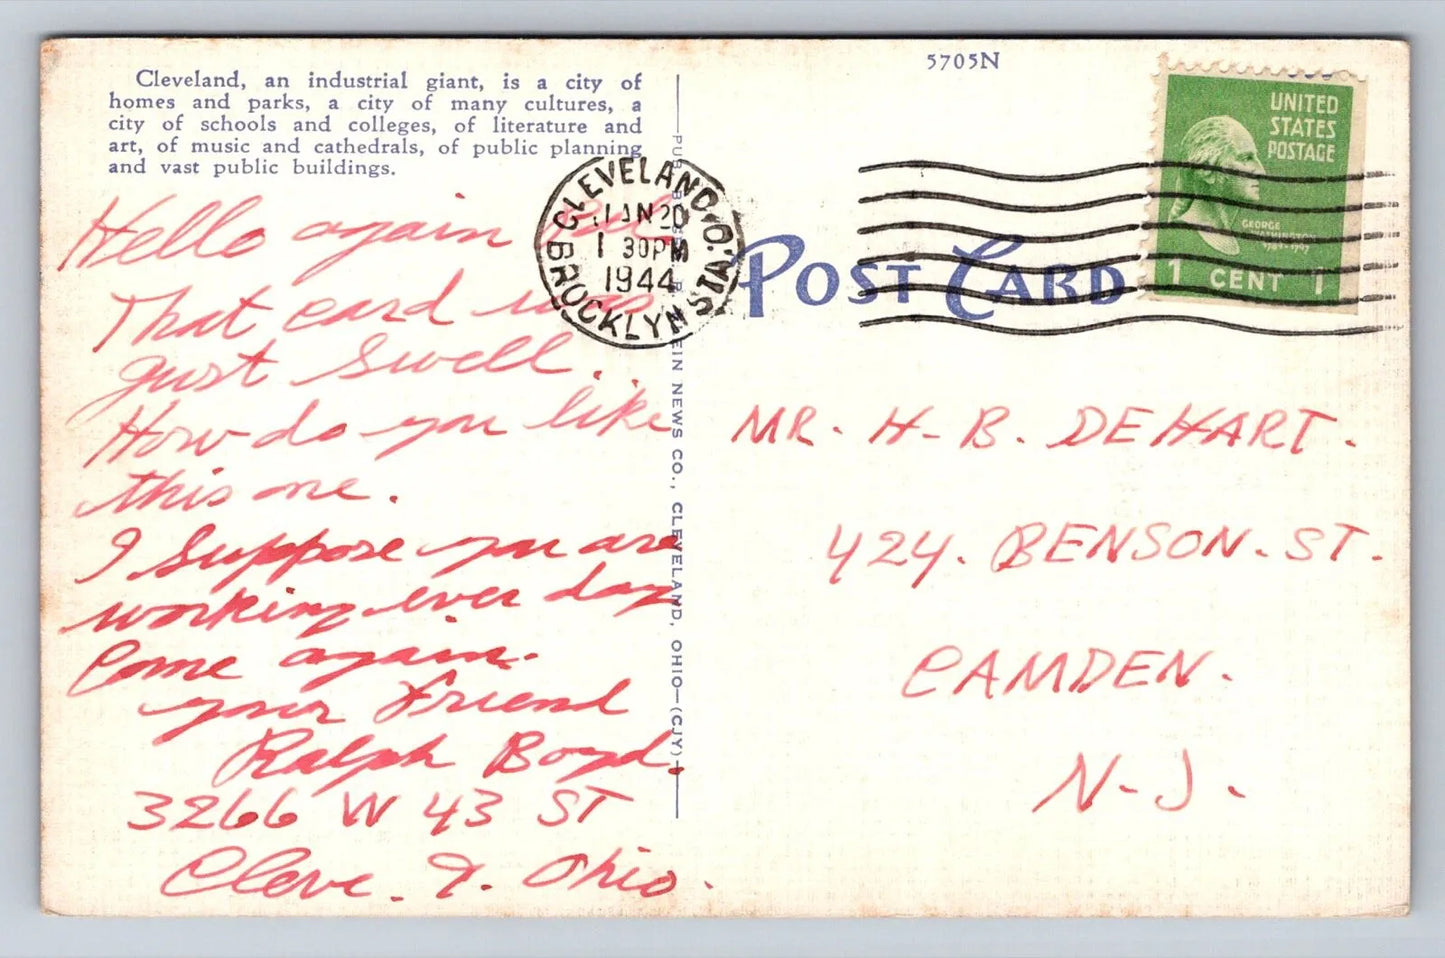 Cleveland, an industrial giant, is a city of
homes and parks, a city of many cultures, a
city of schools and colleges, of literature and
art, of music and cathedrals, of public planning
and vast public buildings.
Hello again Pal
That card was
just swell.
How do you like
this one.
I suppose you are
working ever day
Come again.
your Friend
Ralph Boyd.
3266 W 43 ST
Cleve. 9. Ohio.
EIN NEWS CO., CLEVELAND, OHIO—(CJY)
CLEVELAND, O.
BROOKLYN STA.
JAN 20
1 30PM
1944
5705N
POST CARD
UNITED
STATES
POSTAGE
GEORGE
WASHINGTON
1 CENT 1
MR. H. B. DEHART.
424. BENSON. ST.
CAMDEN.
N. J.